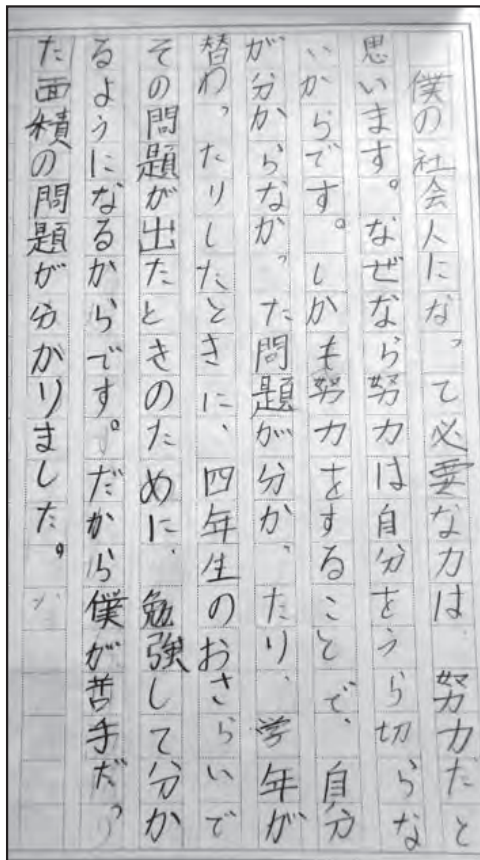 僕の社会人になって必要な力は、努力だと
思います。なぜなら努力は自分をうら切らな
いからです。しかも努力をすることで、自分
が分からなかった問題が分かったり、学年が
替わったりしたときに、四年生のおさらいで
その問題が出たときのために、勉強して分か
るようになるからです。だから僕が苦手だっ
た面積の問題が分かりました。